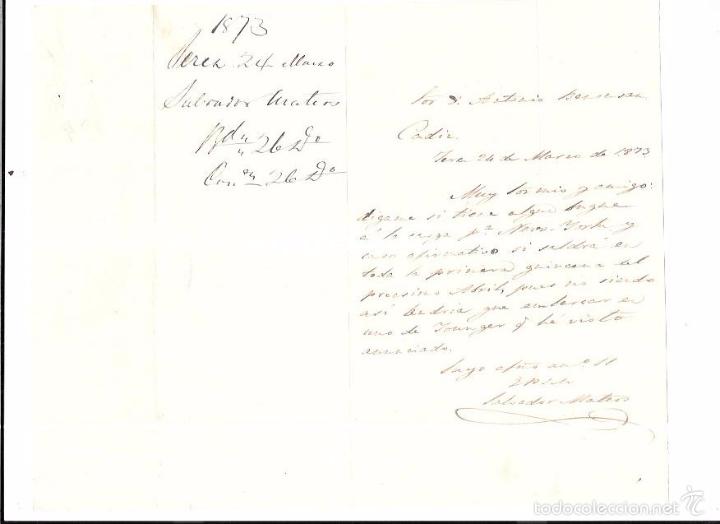 1873
Jerez 24 Marzo
Salvador Mateos
26 Do
Con.on 26 Do
Sor D. Antonio
Cadiz
Jerez 24 de Marzo de 1873
Muy Sor mio y amigo:
digame si tiene algun buque
á la carga pa. Nova York y
caso afirmativo si saldrá en
toda la primera quincena del
procsimo Abril, pues no siendo
asi tendria que embarcar en
uno de Younger q he visto
anunciado.
Suyo afmo
Salvador Mateos
todocoleccion.net